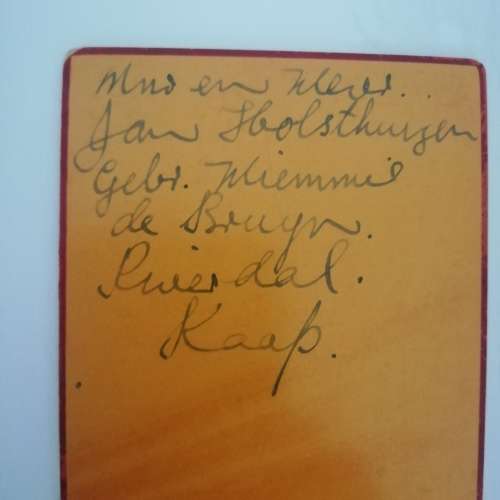 Mnr en Mevr.
Jan Holsthuizen
Gebr. Miemmie
de Bruyn.
Rivierdal.
Kaap.